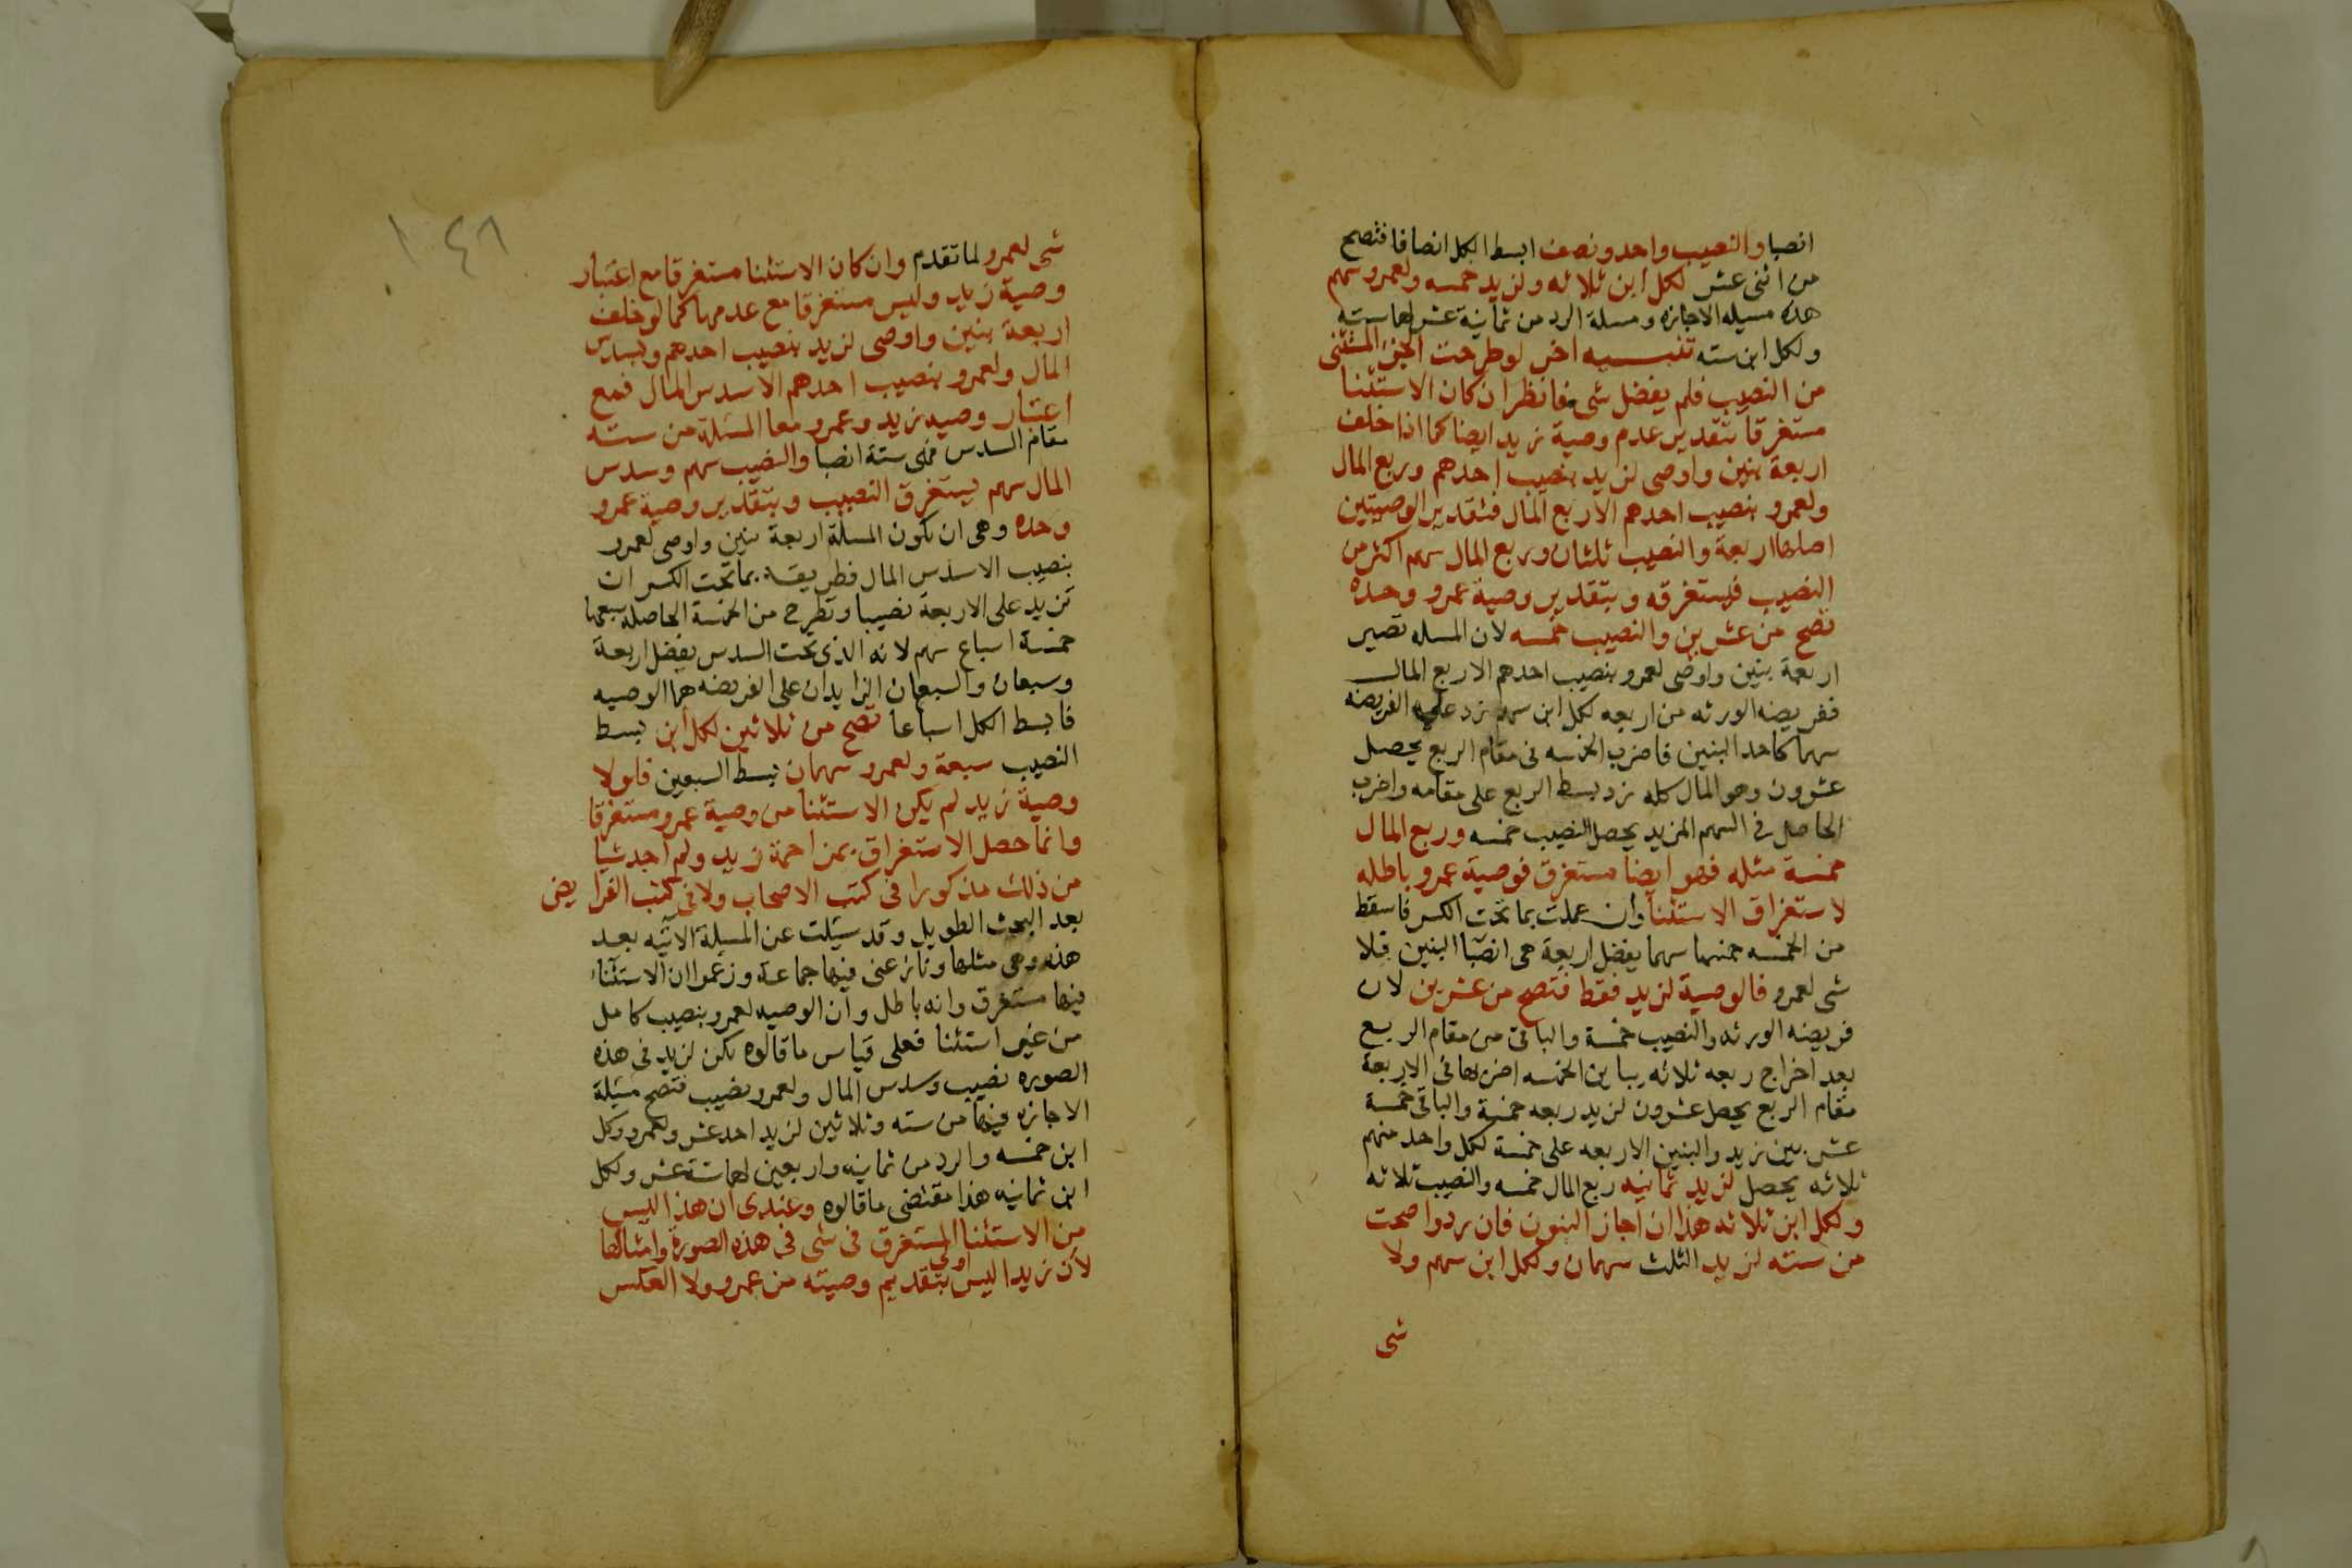 انصبا والنصيب واحد ونصف ابسط الكل انصافا فتصح
من اثنى عشر لكل ابن ثلاثه ولزيد خمسه ولعمرو سهم
هذه مسيله الاجازه ومسلة الرد من ثمانية عشر لهما سته
ولكل ابن سته تنبيه اخر لو طرحت الجزء المستثنى
من النصيب فلم يفضل شى فانظر ان كان الاستثنا
مستغرقا بتقدير عدم وصية زيد ايضا كما اذا خلف
اربعة بنين واوصى لزيد بنصيب احدهم وربع المال
ولعمرو بنصيب احدهم الا ربع المال فبتقدير الوصيتين
اصلها اربعة والنصيب ثلثان وربع المال سهم اكثر من
النصيب فيستغرقه وبتقدير وصية عمرو وحده
تصح من عشرين والنصيب خمسه لان المسله تصير
اربعة بنين واوصى لعمرو بنصيب احدهم الا ربع المال
ففريضه الورثه من اربعه لكل ابن سهم زد على الفريضه
سهما كاحد البنين فاضرب الخمسه فى مقام الربع يحصل
عشرون وهو المال كله زد بسط الربع على مقامه واضرب
الحاصل فى السهم المزيد يحصل النصيب خمسه وربع المال
خمسة مثله فهو ايضا مستغرق فوصية عمرو باطله
لاستغراق الاستثنا وان عملت بما تحت الكسر فاسقط
من الخمسه خمسها سهما يفضل اربعة هى انصبا البنين فلا
شى لعمرو فالوصية لزيد فقط فتصح من عشرين لان
فريضه الورثه والنصيب خمسة والباقى من مقام الربع
بعد اخراج ربعه ثلاثه يباين الخمسه اضربها فى الاربعة
مقام الربع يحصل عشرون لزيد ربعه خمسة والباقى خمسة
عشر بين زيد والبنين الاربعه على خمسة لكل واحد منهم
ثلاثه يحصل لزيد ثمانيه ربع المال خمسه والنصيب ثلاثه
ولكل ابن ثلاثه هذا ان اجاز البنون فان ردوا صحت
من سته لزيد الثلث سهمان ولكل ابن سهم ولا
شى
١٠٤٦
شى لعمرو لما تقدم وان كان الاستثنا مستغرقا مع اعتبار
وصية زيد وليس مستغرقا مع عدمها كما لو خلف
اربعة بنين واوصى لزيد بنصيب احدهم وبسدس
المال ولعمرو بنصيب احدهم الا سدس المال فمع
اعتبار وصيه زيد وعمرو معا المسئلة من سته
مقام السدس فهى ستة انصبا والنصيب سهم وسدس
المال سهم يستغرق النصيب وبتقدير وصية عمرو
وحده وهى ان تكون المسلة اربعة بنين واوصى لعمرو
بنصيب الا سدس المال فطريقه بما تحت الكسر ان
تزيد على الاربعة نصيبا وتطرح من الخمسة الحاصله سبعها
خمسة اسباع سهم لانه الذى تحت السدس يفضل اربعة
وسبعان والسبعان الزايدان على الفريضه هما الوصيه
فابسط الكل اسباعا تصح من ثلاثين لكل ابن بسط
النصيب سبعة ولعمرو سهمان بسط السبعين فلولا
وصية زيد لم يكن الاستثنا من وصية عمرو مستغرقا
وانما حصل الاستغراق بمزاحمة زيد ولم اجد شيا
من ذلك مذكورا فى كتب الاصحاب ولا فى كتب الفرايض
بعد البحث الطويل وقد سيلت عن المسيلة الاتيه بعد
هذه وهى مثلها ونازعنى فيها جماعة وزعموا ان الاستثناء
فيها مستغرق وانه باطل وان الوصيه لعمرو بنصيب كامل
من غير استثنا فعلى قياس ما قالوه يكن لزيد فى هذه
الصوره نصيب وسدس المال ولعمرو نصيب فتصح مسيلة
الاجازه فيها من سته وثلاثين لزيد احد عشر ولعمرو وكل
ابن خمسه والرد من ثمانيه واربعين لهما ستة عشر ولكل
ابن ثمانيه هذا مقتضى ما قالوه وعندى ان هذا ليس
من الاستثنا المستغرق فى شى فى هذه الصورة وامثالها
لان زيدا ليس اولى بتقديم وصيته من عمرو ولا العكس